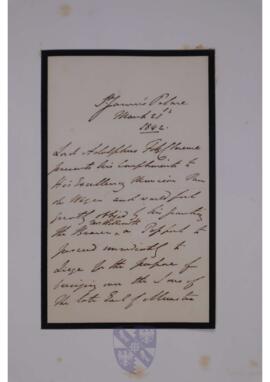 St James's Palace
March 21st
1842.
Lord Adolphus FitzClarence
presents his Compliments to
His Excellency Monsieur Van
de Weyer and would feel
greatly obliged by his granting
the Bearer a Passport to
proceed immediately to
Liege for the purpose of
bringing over the Sons of
The late Earl of Munster